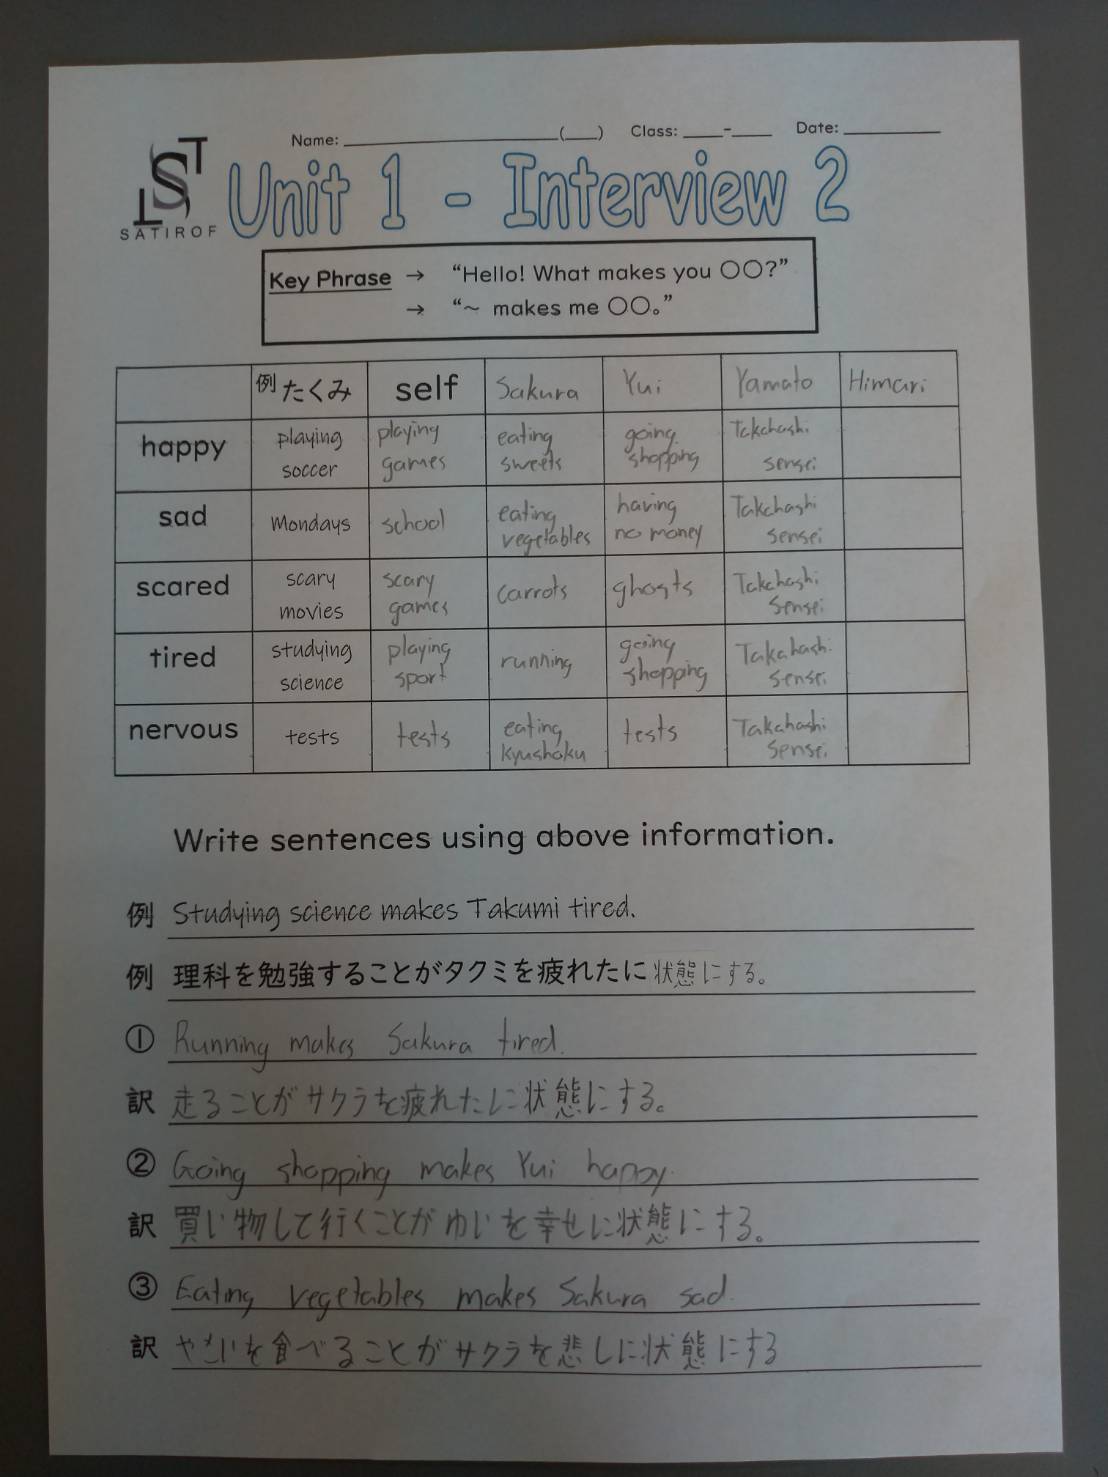 Name: ____________(___) Class: ____-____ Date: ________
LST
SATIROF
Unit 1 - Interview 2
Key Phrase → “Hello! What makes you ○○?”
→ “~ makes me ○○。”
例 たくみ self Sakura Yui Yamato Himari
happy playing soccer playing games eating sweets going shopping Takahashi sensei
sad Mondays school eating vegetables having no money Takahashi sensei
scared scary movies scary games carrots ghosts Takahashi sensei
tired studying science playing sport running going shopping Takahashi sensei
nervous tests tests eating kyushoku tests Takahashi sensei
Write sentences using above information.
例 Studying science makes Takumi tired.
例 理科を勉強することがタクミを疲れたに状態にする。
① Running makes Sakura tired.
訳 走ることがサクラを疲れたに状態にする。
② Going shopping makes Yui happy.
訳 買い物して行くことがゆいを幸せに状態にする。
③ Eating vegetables makes Sakura sad.
訳 やさいを食べることがサクラを悲しに状態にする